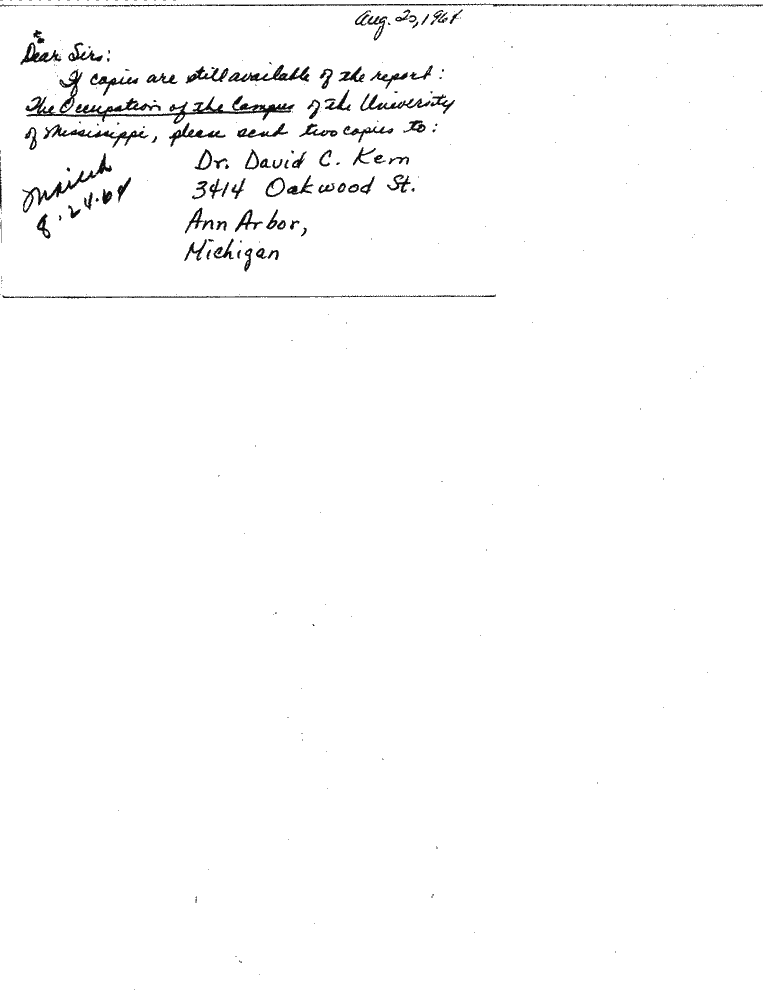 Aug. 20, 1964
Dear Sirs:
If copies are still available of the report:
The Occupation of the Campus of the University
of Mississippi, please send two copies to:
Dr. David C. Kem
3414 Oakwood St.
Ann Arbor,
Michigan
Mailed
8.24.64